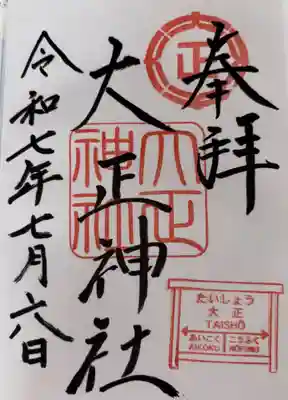 奉拝
大正神社
令和七年七月六日
正
大正
神社
たいしょう
大正
TAISHŌ
あいこく こうふく
AIKOKU KŌFUKU